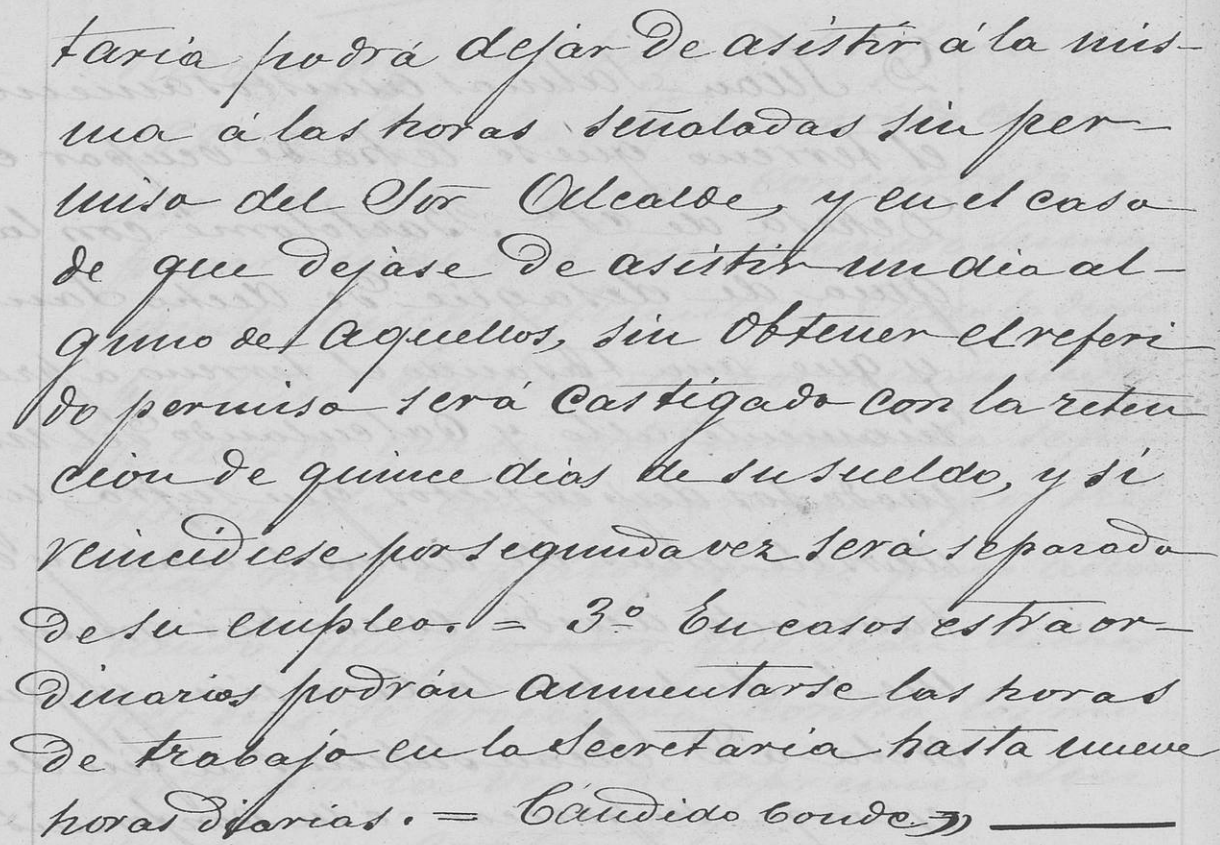 taria podrá dejar de asistir á la mis-
ma á las horas señaladas sin per-
miso del Sor Alcalde, y en el caso
de que dejase de asistir un dia al-
guno de aquellos, sin obtener el referi
do permiso será castigado con la reten
cion de quince dias de su sueldo, y si
reincidiese por segunda vez será separado
de su empleo. = 3º En casos estraor-
dinarios podrán aumentarse las horas
de trabajo en la Secretaria hasta nueve
horas diarias. = Cándido Conde,,